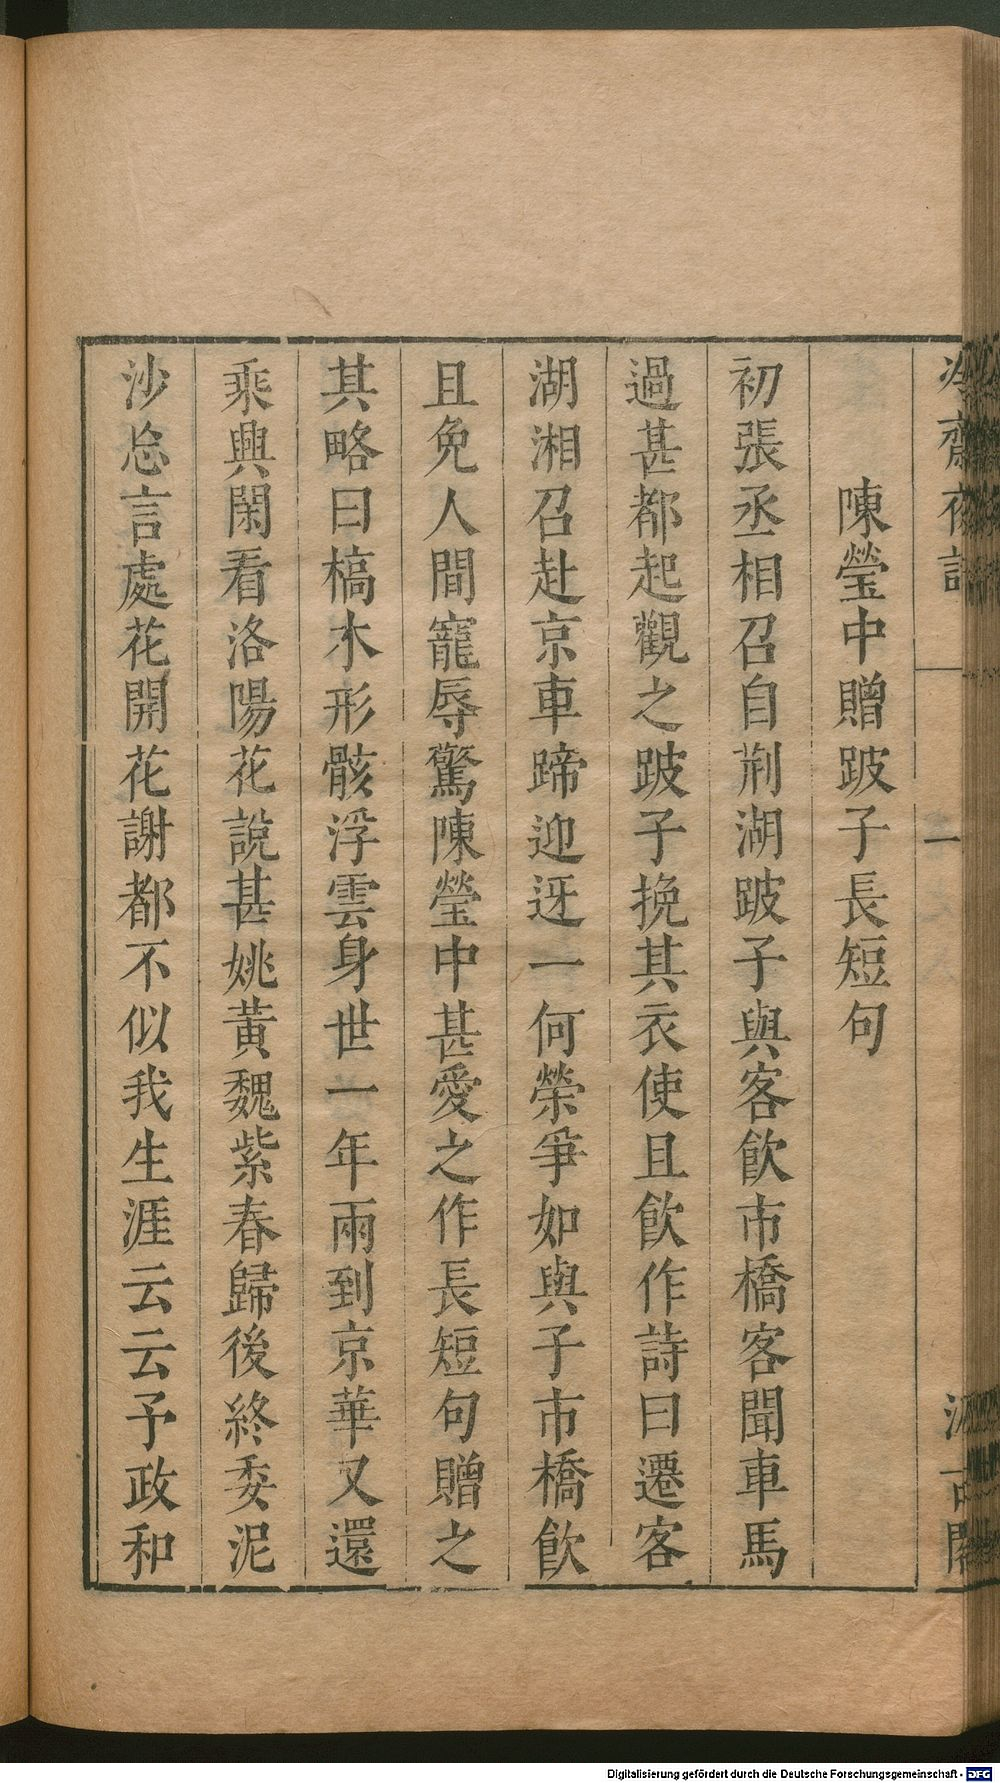 冷齋夜話
一
汲古閣
陳瑩中贈跛子長短句
初張丞相召自荆湖跛子與客飲市橋客聞車馬
過甚都起觀之跛子挽其衣使且飲作詩曰遷客
湖湘召赴京車蹄迎迓一何榮爭如與子市橋飲
且免人間寵辱驚陳瑩中甚愛之作長短句贈之
其略曰槁木形骸浮雲身世一年兩到京華又還
乘興閑看洛陽花說甚姚黃魏紫春歸後終委泥
沙忘言處花開花謝都不似我生涯云云予政和
Digitalisierung gefördert durch die Deutsche Forschungsgemeinschaft - DFG